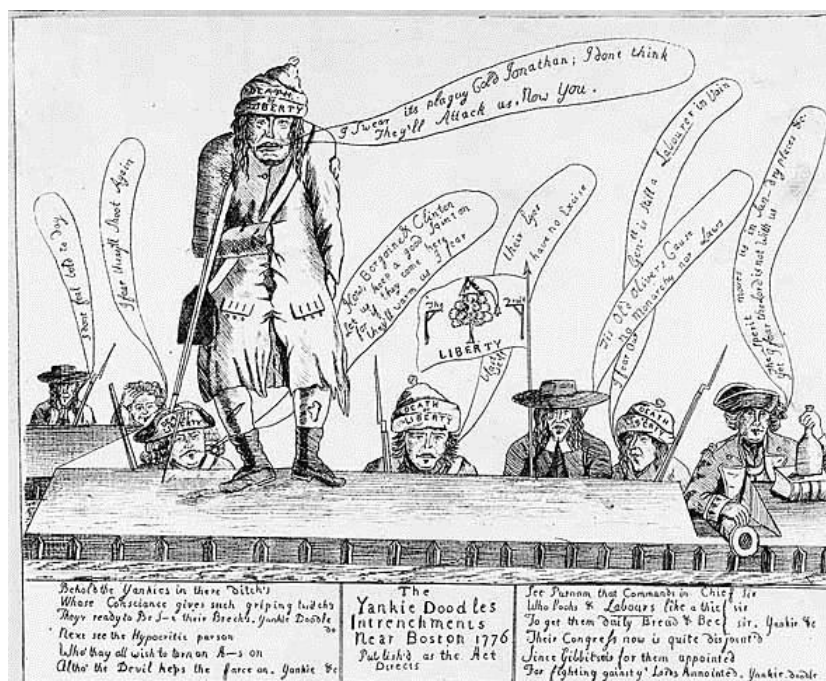 I Swear its plaguy Cold Jonathan; I dont think
They'll Attack us, Now You.
DEATH
or
LIBERTY
I dont feel bold to Day
I fear they'll Shoot Again
Now, Borgoine & Clinton
Let us keep a good Jaint on
for if they come here
they'll warm us I fear
their Eyes
have no Excise
The
LIBERTY
Gen is still a Labourer in Vain
Tis Old Olivers Cause
no Monarchy nor Laws
I fear Our
Spirit moves us in Sun- dry places &c
I fear the Lord is not With us
DEATH
LIBERTY
DEATH
or
LIBERTY
DEATH
LIBERTY
Behold the Yankies in there ditch's
Whose Conscience gives such griping twitchs
They'r ready to Be S—e their Brechs. Yankie Doodle
do
Next see the Hypocritic parson
Who thay all wish to turn an A—s on
Altho' the Devil keps the farce on. Yankie &c
The
Yankie Doodles
Intrenchments
Near Boston 1776
Publish'd as the Act
Directs
See Putnam that Commands in Chief Sir
Who Looks & Labours like a thief sir
To get them daily Bread & Beef sir. Yankie &c
Their Congress now is quite disjoint'd
Since Gibbits is for them appointed
For fighting gainst ye Lords Annointed. Yankie. doodle